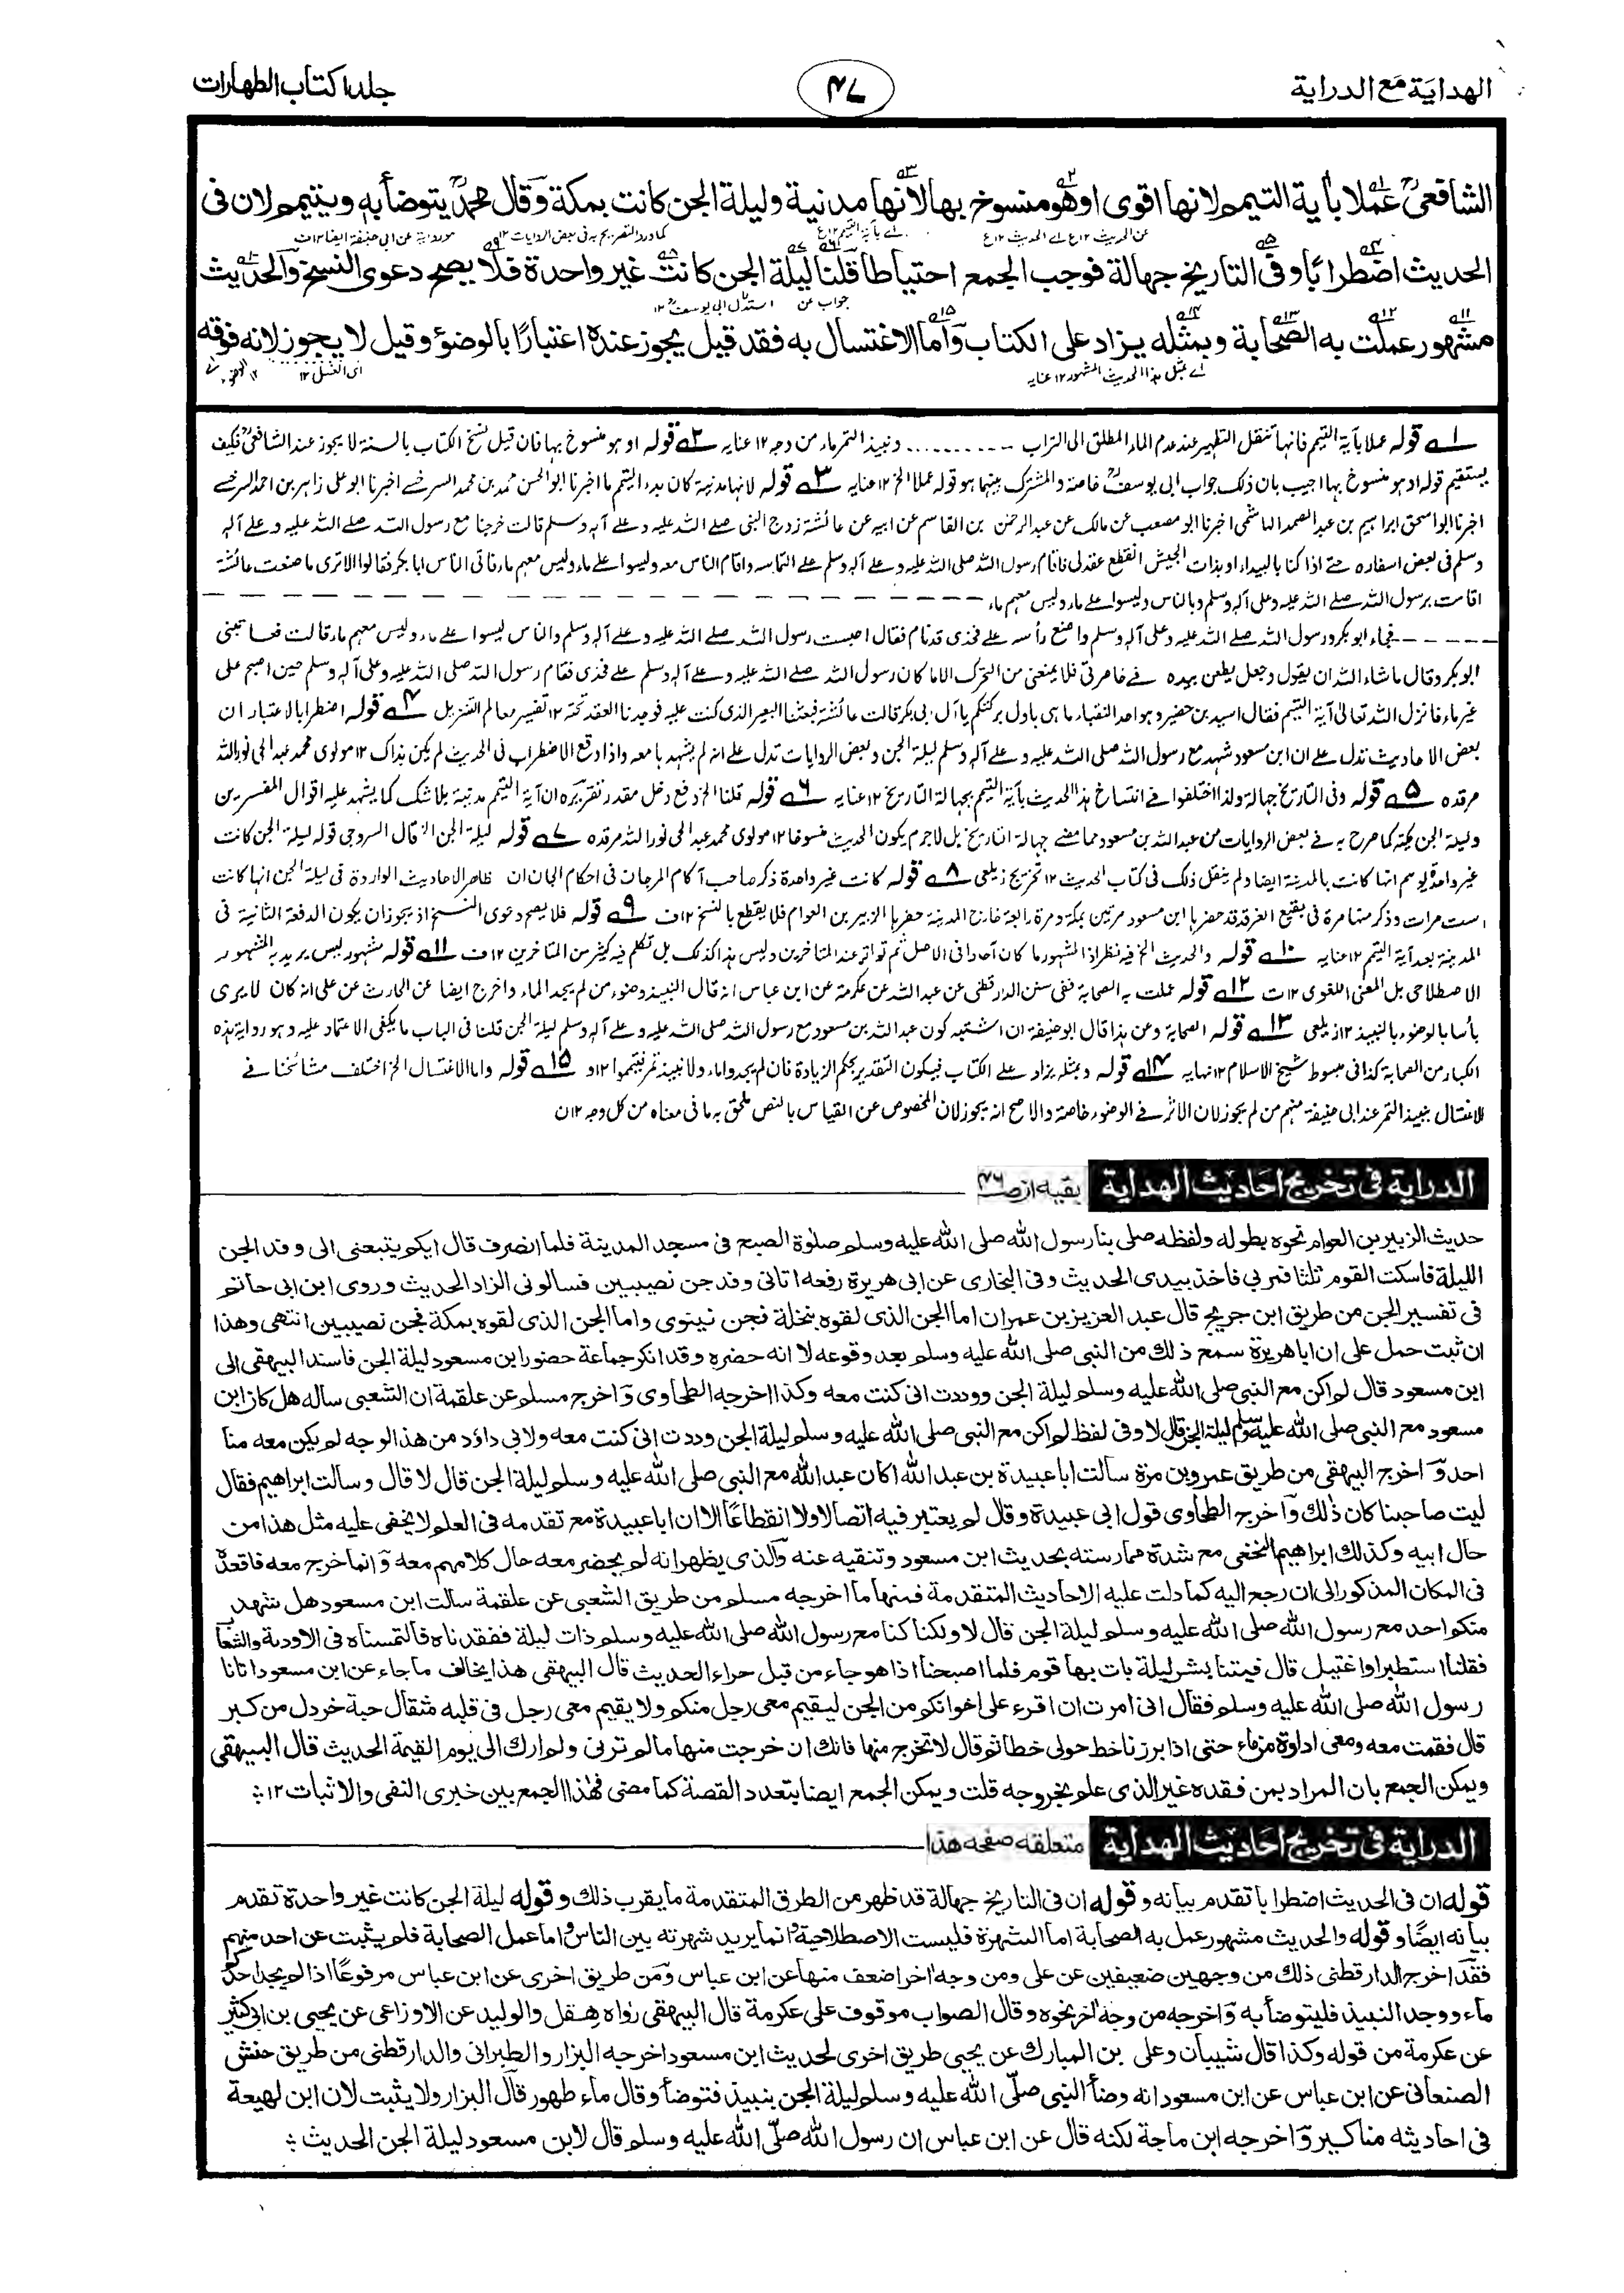 الهداية مع الدراية
٤٧
جلد ١ كتاب الطهارات
الشافعيؒ عملا بأية التيمم لانها اقوى او هو منسوخ بها لانها مدنية وليلة الجن كانت بمكة وقال محمدؒ يتوضأ به ويتيمم لان فى
الحديث اضطرابا وفى التاريخ جهالة فوجب الجمع احتياطا قلنا ليلة الجن كانت غير واحدة فلا يصح دعوى النسخ والحديث
مشهور عملت به الصحابة وبمثله يزاد على الكتاب وأما الاغتسال به فقد قيل يجوز عنده اعتبارًا بالوضوء وقيل لا يجوز لانه فوقه
١ قوله عملا بآية التيمم فانها تنقل التطهير عند عدم الماء المطلق الى التراب .......... ونبيذ التمر ماء من وجه ١٢ عنايه ٢ قوله او هو منسوخ بها فان قيل نسخ الكتاب بالسنة لا يجوز عند الشافعيؒ فكيف
يستقيم قوله او هو منسوخ بها اجيب بان ذلك جواب ابى يوسفؒ خاصة والمشترك بينهما هو قوله عملا الخ ١٢ عنايه ٣ قوله لانها مدنية كان بدء التيمم ما اخبرنا ابو الحسن محمد بن محمد السرخسے اخبرنا ابو على زاهر بن احمد السرخسے
اخبرنا ابو اسحق ابراهيم بن عبد الصمد الهاشمى اخبرنا ابو مصعب عن مالك عن عبد الرحمن بن القاسم عن ابيه عن عائشة زوج النبى صلے الله عليه وعلے آله وسلم قالت خرجنا مع رسول الله صلے الله عليه وعلے آله
وسلم فى بعض اسفاره حتے اذا كنا بالبيداء او بذات الجيش انقطع عقد لى فاقام رسول الله صلى الله عليه وعلے آله وسلم علے التماسه واقام الناس معه وليسوا علے ماء وليس معهم ماء فاتى الناس ابا بكر فقالوا الا ترى ما صنعت عائشة
اقامت برسول الله صلے الله عليه وعلى آله وسلم وبالناس وليسوا علے ماء وليس معهم ماء
فجاء ابو بكر ورسول الله صلے الله عليه وعلى آله وسلم واضع رأسه علے فخذى قد نام فقال احبست رسول الله صلے الله عليه وعلے آله وسلم والناس ليسوا علے ماء وليس معهم ماء قالت فعاتبنى
ابو بكر وقال ما شاء الله ان يقول وجعل يطعن بيده فے خاصرتى فلا يمنعنى من التحرك الا مكان رسول الله صلے الله عليه وعلے آله وسلم علے فخذى فقام رسول الله صلى الله عليه وعلى آله وسلم حين اصبح على
غير ماء فانزل الله تعالى آية التيمم فقال اسيد بن حضير وهو احد النقباء ما هى باول بركتكم يا آل ابى بكر قالت عائشة فبعثنا البعير الذى كنت عليه فوجدنا العقد تحته ١٢ تفسير معالم التنزيل ٤ قوله اضطرابا لاعتبار ان
بعض الاحاديث تدل علے ان ابن مسعود شهد مع رسول الله صلى الله عليه وعلے آله وسلم ليلة الجن وبعض الروايات تدل علے انه لم يشهد ها معه واذا وقع الاضطراب فى الحديث لم يكن بذاك ١٢ مولوى محمد عبد الحى نور الله
مرقده ٥ قوله وفى التاريخ جهالة ولذا اختلفوا فے انتساخ هذا الحديث بآية التيمم بجهالة التاريخ ١٢ عنايه ٦ قوله قلنا الخ دفع دخل مقدر تقريره ان آية التيمم مدنية بلا شك كما يشهد عليه اقوال المفسرين
وليلة الجن مكية كما صرح به فے بعض الروايات من عبد الله بن مسعود فما معنے جهالة التاريخ بل لا جرم يكون الحديث منسوخا ١٢ مولوى محمد عبد الحى نور الله مرقده ٧ قوله ليلة الجن الخ قال السروجى قوله ليلة الجن كانت
غير واحدة يوهم انها كانت بالمدينة ايضا ولم ينقل ذلك فى كتاب الحديث ١٢ تخريج زيلعى ٨ قوله كانت غير واحدة ذكر صاحب آكام المرجان فى احكام الجان ان ظاهر الاحاديث الواردة فى ليلة الجن انها كانت
ست مرات وذكر منها مرة فى بقيع الغرقد قد حضرها ابن مسعود مرتين بمكة ومرة رابعة خارج المدينة حضرها الزبير بن العوام فلا يقطع بالنسخ ١٢ ف ٩ قوله فلا يصح دعوى النسخ اذ يجوز ان يكون الدفعة الثانية فى
المدينة بعد آية التيمم ١٢ عنايه ١٠ قوله والحديث الخ فيه نظر اذ المشهور ما كان آحادا فى الاصل ثم تواتر عند المتاخرين وليس هذا كذلك بل تكلم فيه كثير من المتاخرين ١٢ ف ١١ قوله مشهور ليس يريد به المشهور
الاصطلاحى بل المعنى اللغوى ١٢ ت ١٢ قوله عملت به الصحابة ففى سنن الدارقطنى عن عبد الله عن عكرمة عن ابن عباس انه قال النبيذ وضوء من لم يجد الماء واخرج ايضا عن الحارث عن على انه كان لا يرى
بأسا بالوضوء بالنبيذ ١٢ زيلعى ١٣ قوله الصحابة وعن هذا قال ابو حنيفة ان اشتبه كون عبد الله بن مسعود مع رسول الله صلى الله عليه وعلے آله وسلم ليلة الجن قلنا فى الباب ما يكفى الاعتماد عليه وهو رواية هذه
الكبار من الصحابة كذا فى مبسوط شيخ الاسلام ١٢ نهايه ١٤ قوله وبمثله يزاد علے الكتاب فيكون التقدير بحكم الزيادة فان لم يجدوا ماء ولا نبيذ تمر فتيمموا ١٢ و ١٥ قوله واما الاغتسال الخ اختلف مشائخنا فے
الاغتسال بنبيذ التمر عند ابى حنيفة منهم من لم يجوز لان الاثر فے الوضوء خاصة والاصح انه يجوز لان المخصوص عن القياس بالنص يلحق به ما فى معناه من كل وجه ١٢ ن
الدراية فى تخريج احاديث الهداية بقيه از صـ ٤٦
حديث الزبير بن العوام نحوه بطوله ولفظه صلى بنا رسول الله صلى الله عليه وسلم صلوة الصبح فى مسجد المدينة فلما انصرف قال ايكم يتبعنى الى وفد الجن
الليلة فاسكت القوم ثلثا فمر بي فاخذ بيدى الحديث وفى البخارى عن ابى هريرة رفعه اتانى وفد جن نصيبين فسالونى الزاد الحديث وروى ابن ابى حاتم
فى تفسير الجن من طريق ابن جريج قال عبد العزيز بن عمران اما الجن الذى لقوه بنخلة فجن نينوى واما الجن الذى لقوه بمكة فجن نصيبين انتهى وهذا
ان ثبت حمل على ان ابا هريرة سمع ذلك من النبي صلى الله عليه وسلم بعد وقوعه لا انه حضره وقد انكر جماعة حضور ابن مسعود ليلة الجن فاسند البيهقى الى
ابن مسعود قال لم اكن مع النبي صلى الله عليه وسلم ليلة الجن ووددت انى كنت معه وكذا اخرجه الطحاوى وآخرج مسلم عن علقمة ان الشعبى ساله هل كان ابن
مسعود مع النبي صلى الله عليه وسلم ليلة الجن قال لا وفى لفظ لم اكن مع النبي صلى الله عليه وسلم ليلة الجن وددت انى كنت معه ولابى داؤد من هذا الوجه لم يكن معه منا
احد وآخرج البيهقى من طريق عمرو بن مرة سألت ابا عبيدة بن عبد الله اكان عبد الله مع النبي صلى الله عليه وسلم ليلة الجن قال لا قال وسألت ابراهيم فقال
ليت صاحبنا كان ذلك وآخرج الطحاوى قول ابى عبيدة وقال لم يعتبر فيه اتصالا ولا انقطاعا الا ان ابا عبيدة مع تقدمه فى العلم لا يخفى عليه مثل هذا من
حال ابيه وكذلك ابراهيم النخعى مع شدة ممارسته بحديث ابن مسعود وتنقيه عنه والذى يظهر انه لم يحضر معه حال كلامهم معه وآنما خرج معه فاقعده
فى المكان المذكور الى ان رجع اليه كما دلت عليه الاحاديث المتقدمة فمنها ما اخرجه مسلم من طريق الشعبى عن علقمة سالت ابن مسعود هل شهد
منكم احد مع رسول الله صلى الله عليه وسلم ليلة الجن قال لا ولكنا كنا مع رسول الله صلى الله عليه وسلم ذات ليلة ففقدناه فالتمسناه فى الاودية والشعاب
فقلنا استطير او اغتيل قال فبتنا بشر ليلة بات بها قوم فلما اصبحنا اذا هو جاء من قبل حراء الحديث قال البيهقى هذا يخالف ما جاء عن ابن مسعود اتانا
رسول الله صلى الله عليه وسلم فقال انى امرت ان اقرء على اخوانكم من الجن ليقيم معى رجل منكم ولا يقيم معى رجل فى قلبه مثقال حبة خردل من كبر
قال فقمت معه ومعى اداوة من ماء حتى اذا برزنا خط حولى خطا ثم قال لا تخرج منها فانك ان خرجت منها ما لم ترنى ولم ارك الى يوم القيمة الحديث قال البيهقى
ويمكن الجمع بان المراد بمن فقده غير الذى علم بخروجه قلت ويمكن الجمع ايضا بتعدد القصة كما مضى فهذا الجمع بين خبرى النفى والاثبات ١٢
الدراية فى تخريج احاديث الهداية متعلقه صفحه هذا
قوله ان فى الحديث اضطرابا تقدم بيانه وقوله ان فى التاريخ جهالة قد ظهر من الطرق المتقدمة ما يقرب ذلك وقوله ليلة الجن كانت غير واحدة تقدم
بيانه ايضًا وقوله والحديث مشهور عمل به الصحابة اما الشهرة فليست الاصطلاحية وانما يريد شهرته بين الناس واما عمل الصحابة فلم يثبت عن احد منهم
فقد اخرج الدارقطنى ذلك من وجهين ضعيفين عن على ومن وجه اخر اضعف منها عن ابن عباس ومن طريق اخرى عن ابن عباس مرفوعًا اذا لم يجد احدكم
ماء ووجد النبيذ فليتوضأ به وآخرجه من وجه آخر نحوه وقال الصواب موقوف على عكرمة قال البيهقى رواه هقل والوليد عن الاوزاعى عن يحيى بن ابى كثير
عن عكرمة من قوله وكذا قال شيبان وعلى بن المبارك عن يحيى طريق اخرى لحديث ابن مسعود اخرجه البزار والطبرانى والدارقطنى من طريق حنش
الصنعانى عن ابن عباس عن ابن مسعود انه وضأ النبي صلى الله عليه وسلم ليلة الجن بنبيذ فتوضأ وقال ماء طهور قال البزار ولا يثبت لان ابن لهيعة
فى احاديثه مناكير وآخرجه ابن ماجة لكنه قال عن ابن عباس ان رسول الله صلى الله عليه وسلم قال لابن مسعود ليلة الجن الحديث